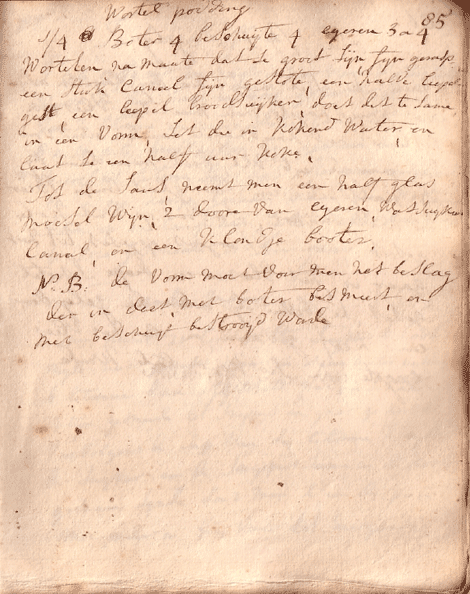 Wortel podding
85
1/4 ℔ Boter 4 beschuyte 4 eyeren 3 a 4
Wortelen na maate dat se groot sijn fyn geraspt
een stuk Caneel fyn gestote, een halve leepel
gest, een leepil broodsuijker, doet dit te same
in een Vorm, Set die in kokend Water, en
laat se een half uur koke,
Tot de Saus neemt men een half glas
moesel Wijn, 2 doore van eyeren,
Caneel, en een klontje booter,
N.B: de Vorm moet voor men het beslag
der in doet, met boter besmeert, en
met beschuyt bestrooyd Warde